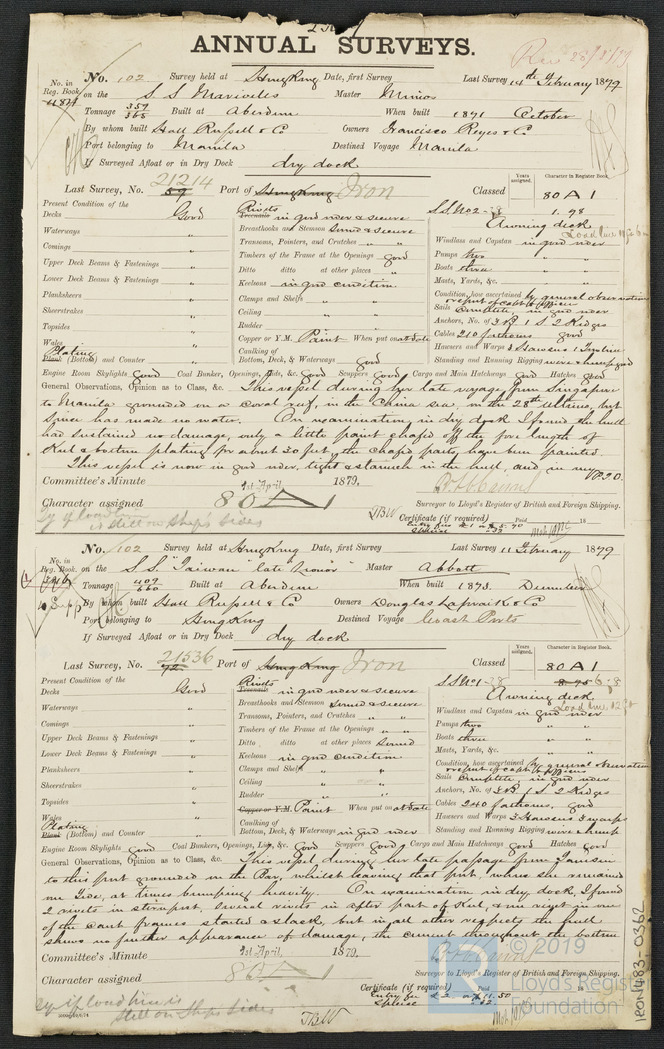 ANNUAL SURVEYS.
No. 102 Survey held at Hong Kong Date, First Survey Last Survey 14th February 1879
No. in Reg. Book on the S. S. Mariveles Master
Tonnage 359 Built at Aberdeen When built 1871 October
By whom built Hall Russell & Co Owners Francisco Reyes & Co
Port belonging to Manila Destined Voyage Manila
If Surveyed Afloat or in Dry Dock dry dock
Last Survey, No. 21214 Port of Hong Kong Iron Classed Years assigned. Character in Register Book. 80 A 1
Present Condition of the
Decks Good
Waterways "
Comings "
Upper Deck Beams & Fastenings "
Lower Deck Beams & Fastenings "
Planksheers "
Sheerstrakes "
Topsides "
Wales "
Plating
Plank (Bottom) and Counter "
Rivets
Treenails in good order & secure
Breasthooks and Stemson sound & secure
Transoms, Pointers, and Crutches " "
Timbers of the Frame at the Openings good
Ditto ditto at other places "
Keelsons in good condition
Clamps and Shelfs "
Ceiling "
Rudder "
Copper or Y.M. Paint When put on at date
Caulking of
Bottom, Deck, & Waterways good
S.S. No 2 - 1.78
Awning deck
Windlass and Capstan in good order
Pumps two "
Boats three "
Masts, Yards, &c. "
Condition, how ascertained by general observation
Sails Complete in good order
Anchors, No. of 3 B. 1 S. 2 Kedges
Cables 210 fathoms good
Hawsers and Warps 3 Hawsers 1
Standing and Running Rigging
Engine Room Skylights good Coal Bunker, Openings, Lids, &c. good Scuppers good Cargo and Main Hatchways good Hatches good
General Observations, Opinion as to Class, &c. This vessel during her late voyage from Singapore
to Manila grounded on a coral reef, in the China sea, on the 28th Ultimo, but
since has made no water. On examination in dry dock I found the hull
had sustained no damage, only a little paint chafed off the fore length of
Keel & bottom plating for about 30 feet, the chafed parts, have been painted.
This vessel is now in good order, tight & staunch in the hull, and in my P.T.O.
Committee's Minute 1st April, 1879.
Character assigned 80 A 1
Surveyor to Lloyd's Register of British and Foreign Shipping.
Certificate (if required)
is still on ship's sides
No. 102 Survey held at Hong Kong Date, first Survey Last Survey 11 February 1879
No. in Reg. Book on the S.S. "Taiwan" late Master Abbott
Tonnage 409 Built at Aberdeen When built 1873. December
By whom built Hall Russell & Co Owners Douglas Lapraik & Co
Port belonging to Hong Kong Destined Voyage Coast Ports
If Surveyed Afloat or in Dry Dock dry dock
Last Survey, No. 21536 Port of Hong Kong Iron Classed Years assigned. Character in Register Book. 80 A 1
Present Condition of the
Decks Good
Waterways "
Comings "
Upper Deck Beams & Fastenings "
Lower Deck Beams & Fastenings "
Planksheers "
Sheerstrakes "
Topsides "
Wales "
Plating
Plank (Bottom) and Counter "
Rivets
Treenails in good order & secure
Breasthooks and Stemson Sound & secure
Transoms, Pointers, and Crutches " "
Timbers of the Frame at the Openings " "
Ditto ditto at other places Sound
Keelsons in good condition
Clamps and Shelfs "
Ceiling "
Rudder "
Copper or Y.M. Paint When put on at date
Caulking of
Bottom, Deck, & Waterways in good order
S.S. No 1 -
Awning deck
Windlass and Capstan in good order
Pumps two "
Boats three "
Masts, Yards, &c. "
Condition, how ascertained by general observation
Sails Complete, in good order
Anchors, No. of 3 B. 1 S. 2 Kedges
Cables 240 fathoms, good
Hawsers and Warps 3 Hawsers 3 warps
Standing and Running Rigging
Engine Room Skylights good Coal Bunkers, Openings, Lids, &c. good Scuppers good Cargo and Main Hatchways good Hatches good
General Observations, Opinion as to Class, &c. This vessel during her late passage from Tamsui
to this port grounded on the Bar, whilst leaving that port, where she remained
one tide, at times bumping heavily. On examination in dry dock, I found
2 rivets in sternpost, several rivets in after part of Keel, & one rivet in one
of the cant frames started & slack, but in all other respects the hull
shews no further appearance of damage, the cement throughout the bottom
Committee's Minute 1st April, 1879.
Character assigned 80 A 1
Surveyor to Lloyd's Register of British and Foreign Shipping.
Certificate (if required)
still on ships sides
© 2019
Lloyd's Register
Foundation
IRON483-0362